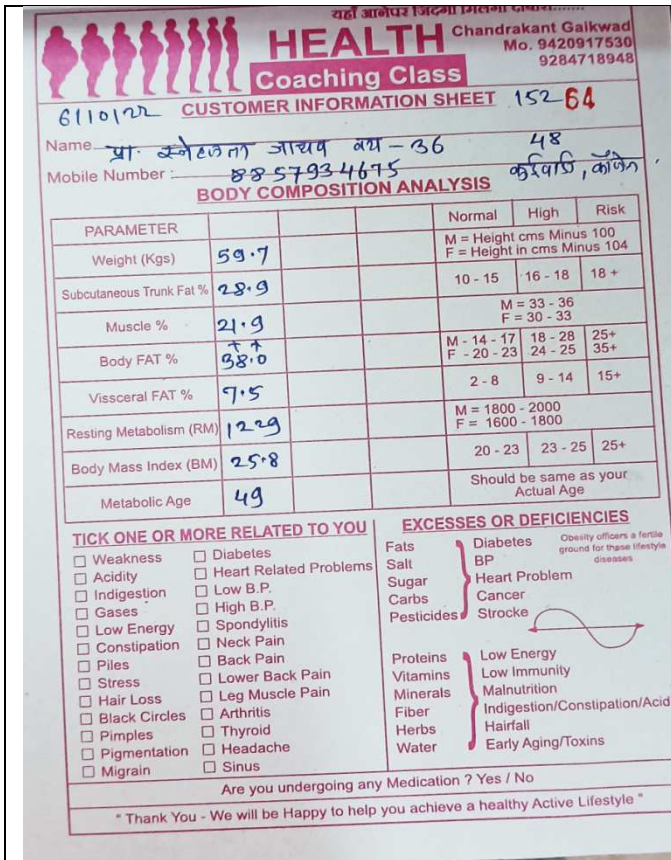 यहाँ आनेपर जिंदगी मिलेगी दोबारा.......
HEALTH
Coaching Class
Chandrakant Gaikwad
Mo. 9420917530
9284718948
6/10/22 CUSTOMER INFORMATION SHEET 152 64
Name प्रा. स्नेहलता जाधव वय - 36 48
Mobile Number : 8857934675
BODY COMPOSITION ANALYSIS
PARAMETER Normal High Risk
Weight (Kgs) 59.7 M = Height cms Minus 100
F = Height in cms Minus 104
Subcutaneous Trunk Fat % 28.9 10 - 15 16 - 18 18 +
Muscle % 21.9 M = 33 - 36
F = 30 - 33
Body FAT % 38.0 ↑ ↑ M - 14 - 17 18 - 28 25+
F - 20 - 23 24 - 25 35+
Vissceral FAT % 7.5 2 - 8 9 - 14 15+
Resting Metabolism (RM) 1229 M = 1800 - 2000
F = 1600 - 1800
Body Mass Index (BM) 25.8 20 - 23 23 - 25 25+
Metabolic Age 49 Should be same as your
Actual Age
TICK ONE OR MORE RELATED TO YOU
Weakness
Acidity
Indigestion
Gases
Low Energy
Constipation
Piles
Stress
Hair Loss
Black Circles
Pimples
Pigmentation
Migrain
Diabetes
Heart Related Problems
Low B.P.
High B.P.
Spondylitis
Neck Pain
Back Pain
Lower Back Pain
Leg Muscle Pain
Arthritis
Thyroid
Headache
Sinus
EXCESSES OR DEFICIENCIES
Fats
Salt
Sugar
Carbs
Pesticides
Diabetes
BP
Heart Problem
Cancer
Strocke
Obesity officers a fertile
ground for these lifestyle
diseases
Proteins
Vitamins
Minerals
Fiber
Herbs
Water
Low Energy
Low Immunity
Malnutrition
Indigestion/Constipation/Acid
Hairfall
Early Aging/Toxins
Are you undergoing any Medication ? Yes / No
" Thank You - We will be Happy to help you achieve a healthy Active Lifestyle "